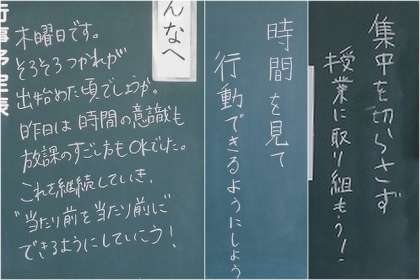 行事予定表
んなへ
木曜日です。
そろそろつかれが
出始めた頃でしょうが。
昨日は時間の意識も
放課のすごし方もOKでした。
これを継続していき、
"当たり前を当たり前に"
できるようにしていこう！
時間を見て
行動できるようにしよう
集中を切らさず
授業に取り組もう！